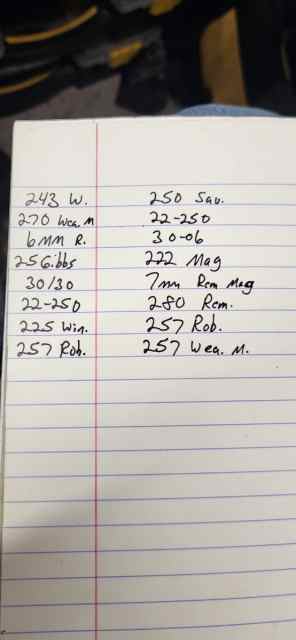 243 W. 250 Sav.
270 Wea. M 22-250
6MM R. 30-06
25 Gibbs 222 Mag
30/30 7mm Rem Mag
22-250 280 Rem.
225 Win. 257 Rob.
257 Rob. 257 Wea. M.